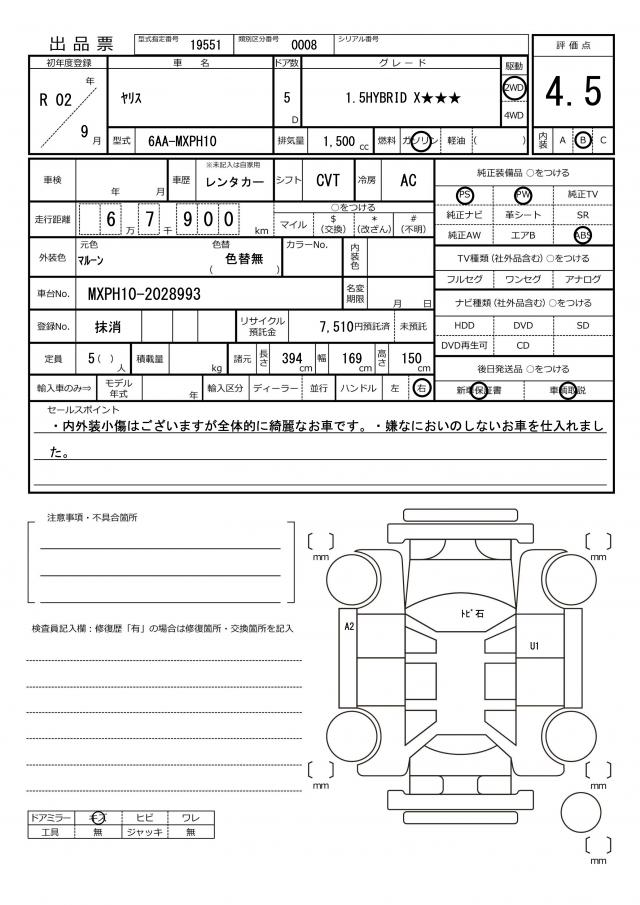 出品票
型式指定番号 19551 類別区分番号 0008 シリアル番号
初年度登録 車名 ドア数 グレード 駆動 評価点
R 02 年 9 月 ヤリス 5 D 1.5HYBRID X★★★ 2WD 4WD 4.5
型式 6AA-MXPH10 排気量 1,500 cc 燃料 ガソリン 軽油 ( ) 内装 A B C
車検 年 月 車歴 ※未記入は自家用 レンタカー シフト CVT 冷房 AC
純正装備品 ○をつける
PS PW 純正TV
純正ナビ 革シート SR
純正AW エアB ABS
走行距離 6 万 7 千 9 0 0 km ○をつける マイル $ (交換) * (改ざん) # (不明)
外装色 元色 マルーン 色替 ( 色替無 ) カラーNo. 内装色
TV種類 (社外品含む) ○をつける
フルセグ ワンセグ アナログ
車台No. MXPH10-2028993 名変期限 月 日
ナビ種類 (社外品含む) ○をつける
HDD DVD SD
DVD再生可 CD
登録No. 抹消 リサイクル預託金 7,510円預託済 未預託
定員 5 ( ) 人 積載量 kg 諸元 長さ 394 cm 幅 169 cm 高さ 150 cm
後日発送品 ○をつける
新車保証書 車輌取説
輸入車のみ⇒ モデル年式 年 輸入区分 ディーラー 並行 ハンドル 左 右
セールスポイント
・内外装小傷はございますが全体的に綺麗なお車です。・嫌なにおいのしないお車を仕入れまし
た。
注意事項・不具合箇所
検査員記入欄：修復歴「有」の場合は修復箇所・交換箇所を記入
ドアミラー キズ ヒビ ワレ
工具 無 ジャッキ 無
mm
mm
トビ石
A2
U1
mm
mm
mm